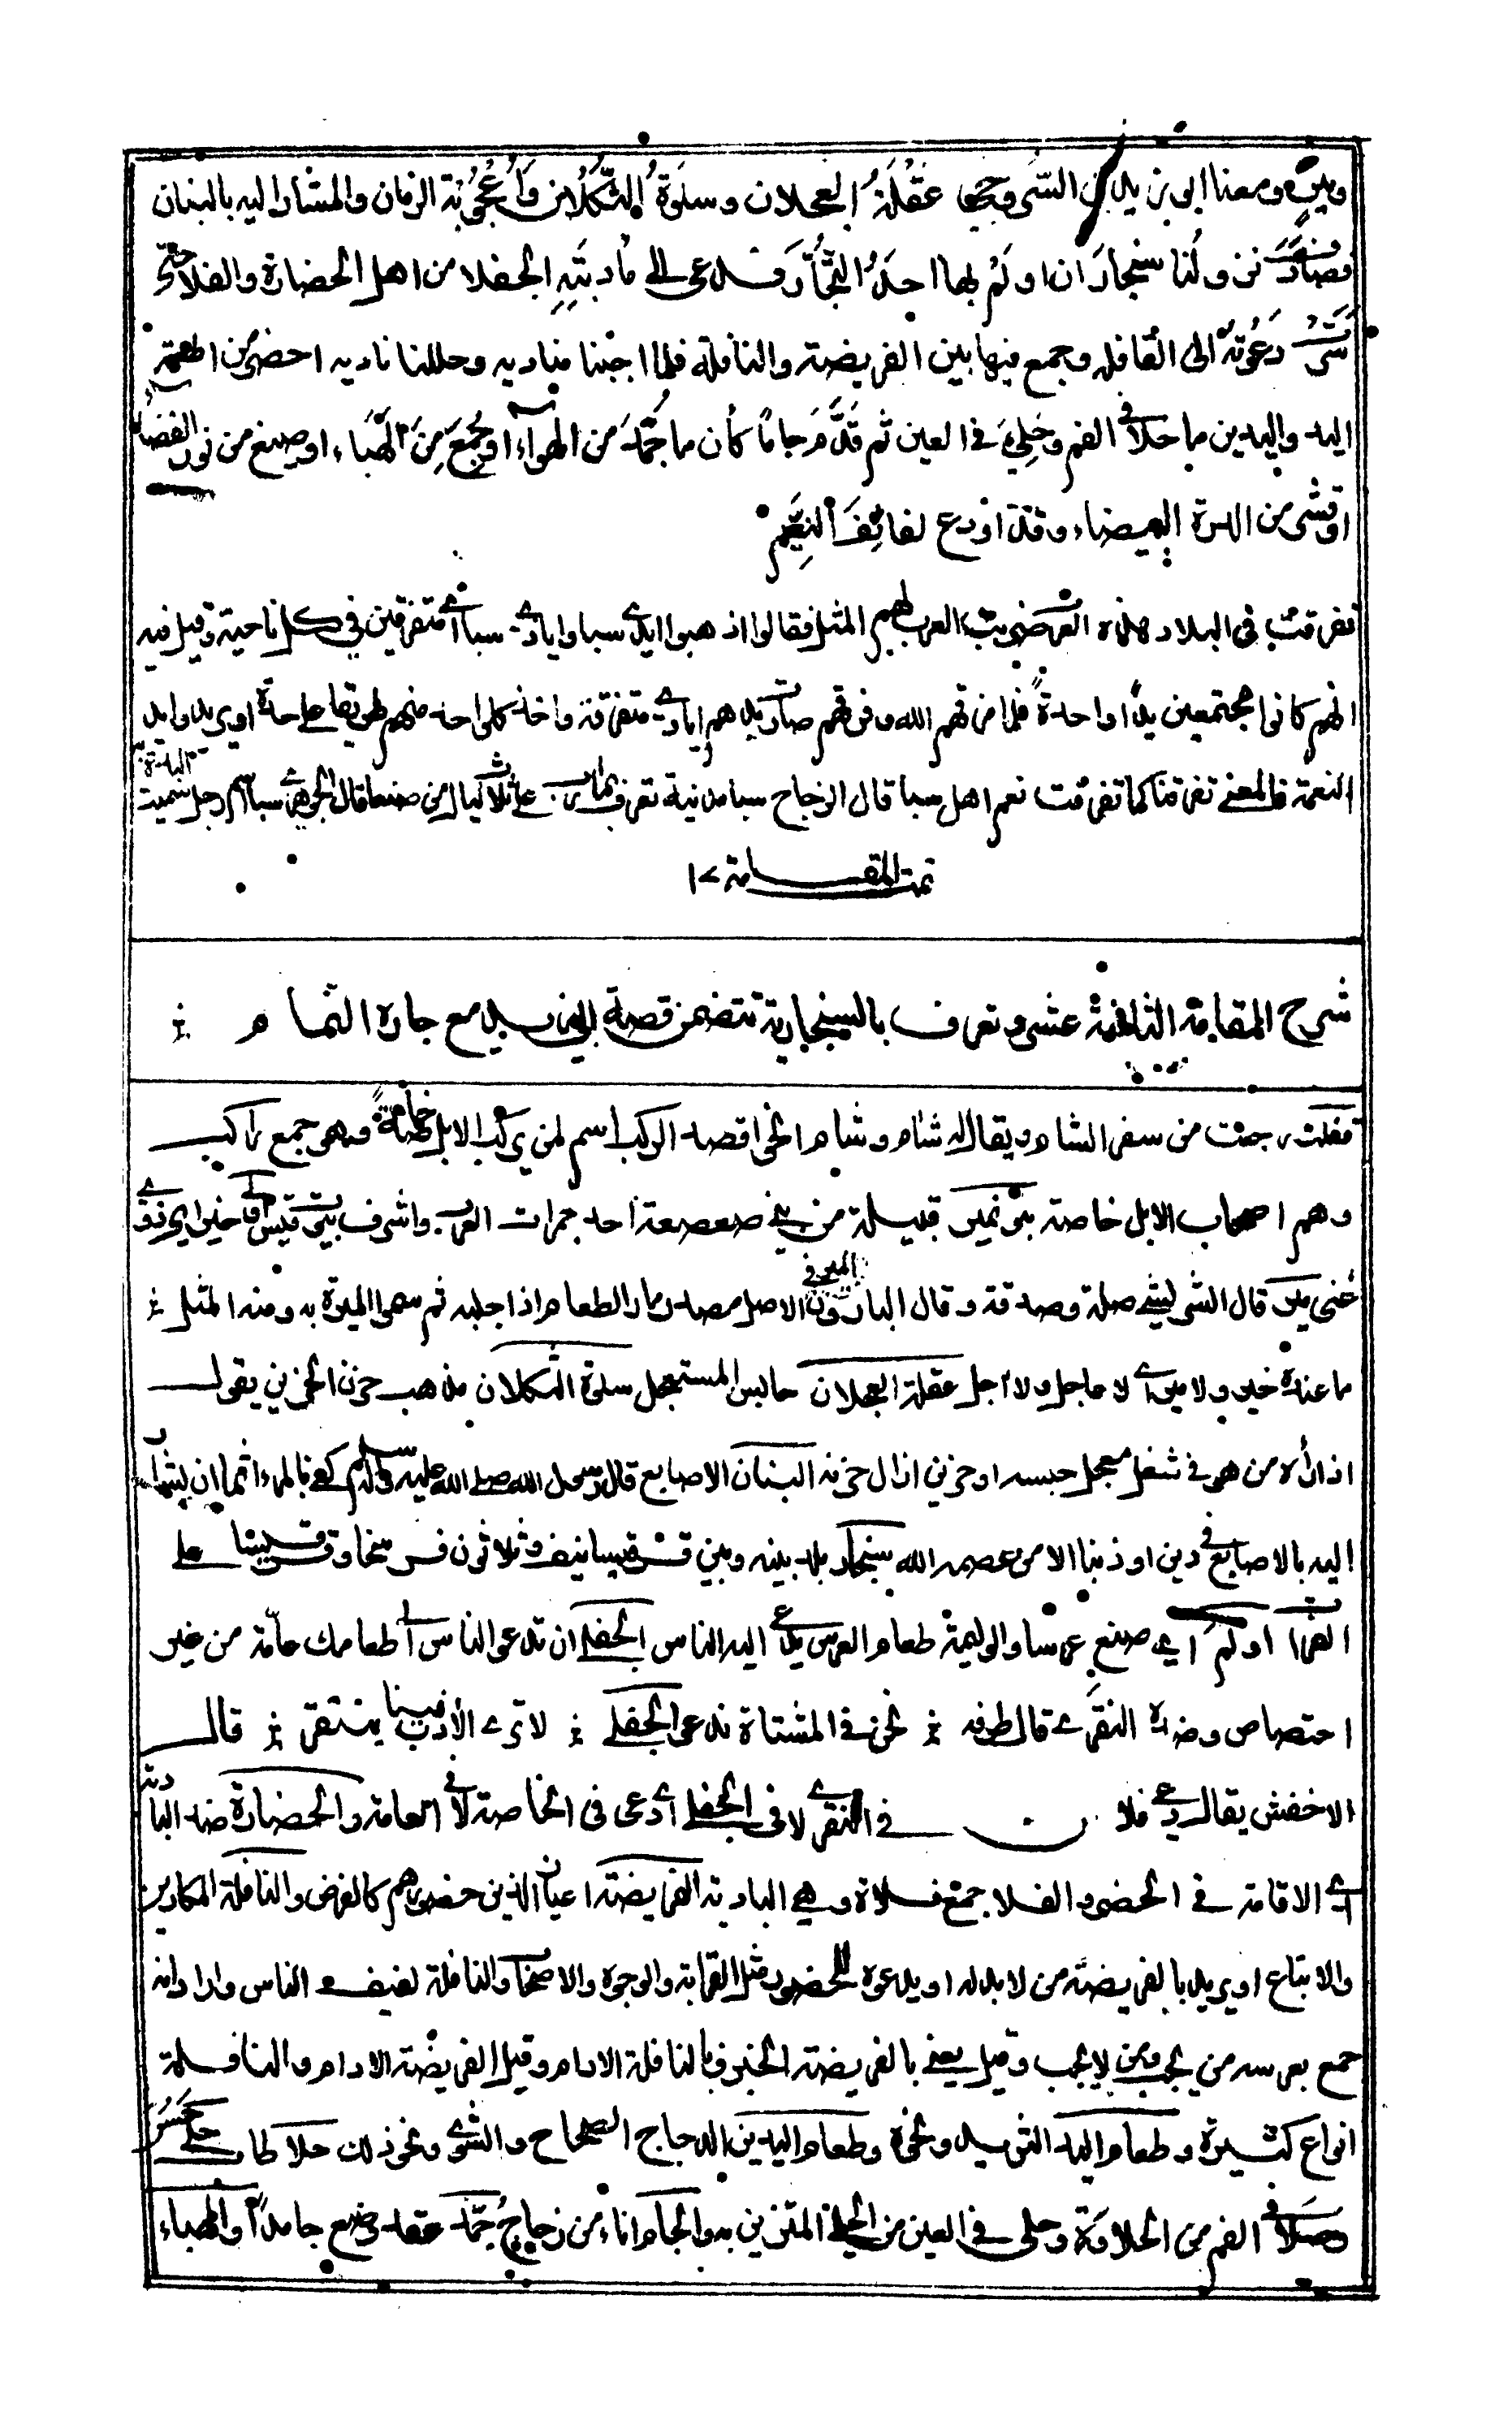 ومير ومعنا ابو زيد السروجي عقلة العجلان وسلوة الثكلان وأعجوبة الزمان والمشار اليه بالبنان
فصادف نزولنا سنجار ان اولم بها احد التجار فدعى الى مأدبته الجفلا من اهل الحضارة والفلا حتى
سرت دعوته الى القافله وجمع فيها بين الفريضة والنافلة فلما اجبنا مناديه وحللنا ناديه احضر من اطعمة
اليد واليدين ما حلا في الفم وحلي في العين ثم قدم جاما كأن ما جمد من الهواء او جمع من الهباء او صيغ من نور الفضاء
او قشر من الدرة البيضاء وقد اودع لفائف النعيم
تفرقت فى البلاد هذه الفرق ضربت العرب بهم المثل فقالوا اذهبوا ايدي سبا وايادي سبا أي متفرقين في كل ناحية وقيل فيه
انهم كانوا مجتمعين يدا واحدة فلما مزقهم الله وفرقهم صارت يدهم ايادي متفرقة واخذ كل واحد منهم طريقا على حدة او يريد وايد
النعمة فالمعنى تفرقنا كما تفرقت نعم اهل سبا قال الزجاج سبا مدينة تعرف بمارب على ثلاث ليال من صنعا قال الجوهري سبا اسم رجل سميت البلدة به
تمت المقامة ١٧
شرح المقامة الثامنة عشر وتعرف بالسنجارية تتضمن قصة ابي زيد مع جاره النمام
قفلت رجعت من سفر الشام ويقال له شئام وشام الحى اقصد الركب اسم لمن يركب الابل خاصة وهى جمع راكب
وهم اصحاب الابل خاصة بنو نمير قبيلة من بني صعصعة احد جمرات العرب واشرف بيت قيس اولي خير اي ذوي
غنى مير قال الشريشي صلة وصدقة وقال البارزي المير في الاصل مصدر مار الطعام اذا جلبه ثم سمى الميرة به ومنه المثل
ما عنده خير ولا مير اي لا عاجل ولا اجل عقلة العجلان حابس المستعجل سلوة الثكلان مذهب حزن الحزين يقول
اذا رأه من هو في شغل معجل حبسه او حزين ازال حزنه البنان الاصابع قال رسول الله صلى الله عليه وسلم كفى بالمرء اثما ان يشار
اليه بالاصابع في دين او دنيا الا من عصمه الله سنجار بلد بينه وبين قرقيسيا نيف وثلاثون فرسخا وقرقيسيا على
الفرات اولم اي صنع عرسا والوليمة طعام العرس يدعى اليه الناس الجفلى ان تدعو الناس الى طعامك عامة من غير
اختصاص وضده النقرى قال طرفه نحن في المشتاة ندعو الجفلى لا ترى الآدب فينا ينتقر قال
الاخفش يقال دعي فلان في النقرى لا فى الجفلى اي دعى فى الخاصة لا في العامة والحضارة ضد البادية
اي الاقامة في الحضر والفلا جمع فلاة وهي البادية الفريضة اعيان الذين حضورهم كالفرض والنافلة المكارين
والاتباع او يريد بالفريضة من لا بد له ان يدعوه للحضور مثل القرابة والوجوه والاصحاب والنافلة لفيف الناس وارادانه
جمع بعرسه من يجب ومن لا يجب وقيل يعني بالفريضة الخبز وبالنافلة الادام وقيل الفريضة الادام والنافلة
انواع كثيرة وطعام اليد الثريد ونحوه وطعام اليدين الدجاج الصحاح والشوى ونحو ذلك حلا طاب حلى حسن
وحلا في الفم من الحلاوة وحلى في العين من الحلي المتزين به والجام اناء من زجاج جمد عقد وضع جامدا والهباء